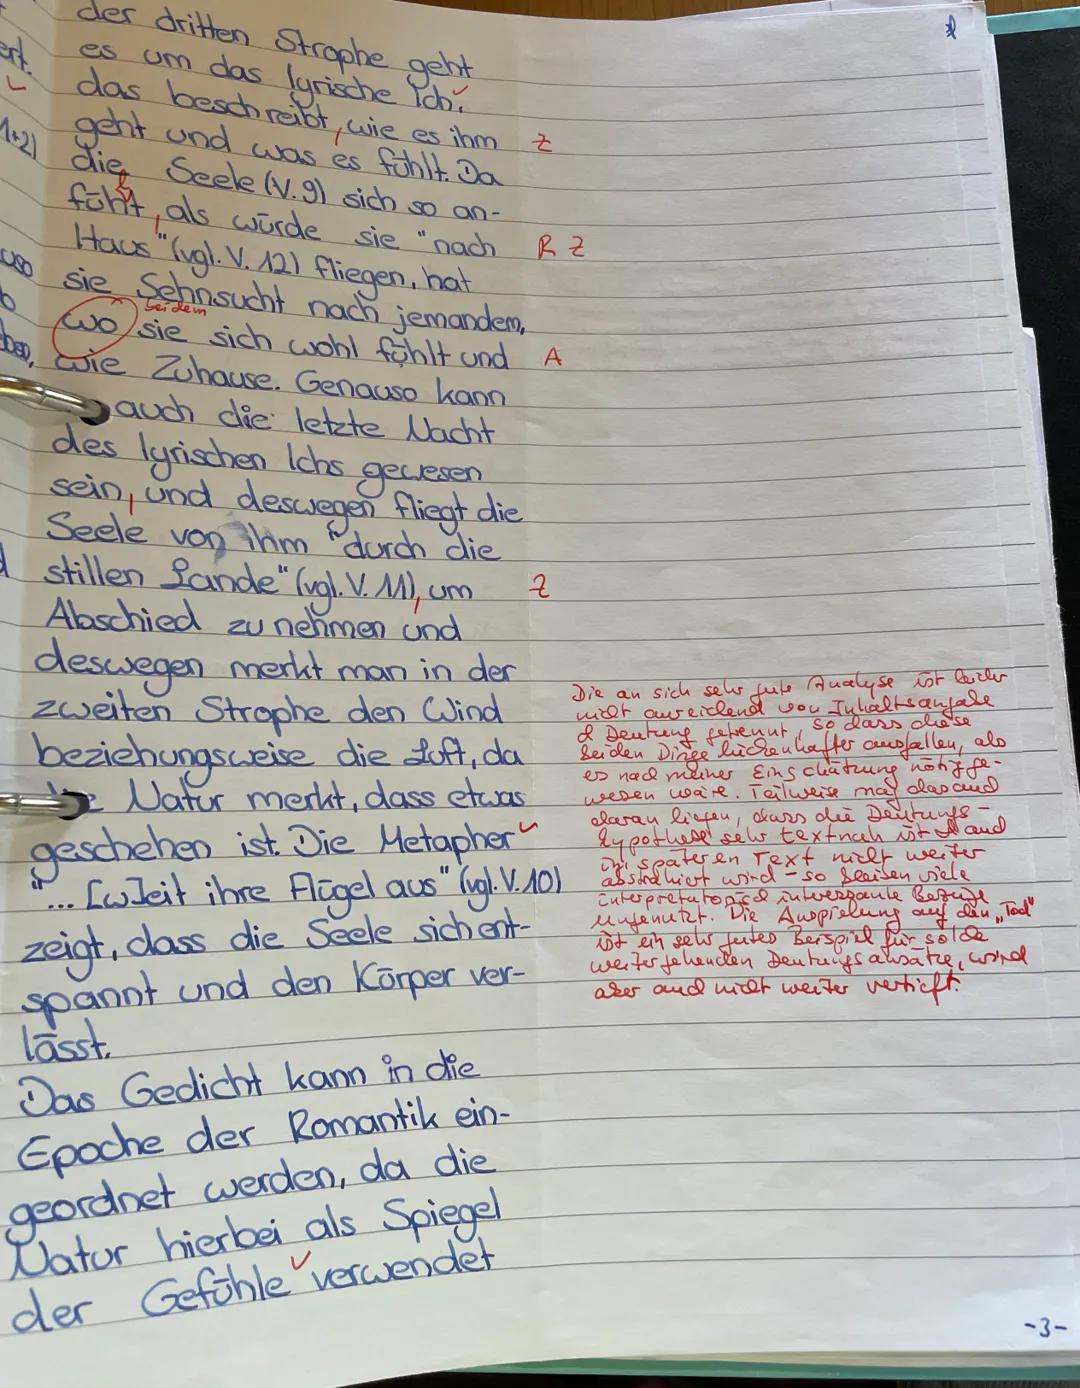 der dritten Strophe geht
es um das lyrische Ich,
das beschreibt, wie es ihm
geht und was es fühlt. Da
die Seele (V. 9) sich so an-
fühlt, als würde sie "nach
Haus" (vgl. V. 12) fliegen, hat
sie Sehnsucht nach jemandem,
bei dem
wo sie sich wohl fühlt und
wie Zuhause. Genauso kann
auch die letzte Nacht
des lyrischen Ichs gewesen
sein, und deswegen fliegt die
Seele von ihm "durch die
stillen Lande" (vgl. V. 11), um
Abschied zu nehmen und
deswegen merkt man in der
zweiten Strophe den Wind
beziehungsweise die Luft, da
die Natur merkt, dass etwas
geschehen ist. Die Metapher
"... [w]eit ihre Flügel aus" (vgl. V. 10)
zeigt, dass die Seele sich ent-
spannt und den Körper ver-
lässt.
Das Gedicht kann in die
Epoche der Romantik ein-
geordnet werden, da die
Natur hierbei als Spiegel
der Gefühle verwendet
ert.
1+2)
uso
ben,
Z
R Z
A
Z
Die an sich sehr gute Analyse ist leider
nicht ausreichend von Inhaltsangabe
& Deutung getrennt, so dass diese
beiden Dinge lückenhafter ausfallen, als
es nach meiner Einschätzung nötig ge-
wesen wäre. Teilweise mag das auch
daran liegen, dass die Deutungs-
hypothese sehr textnah ist und auch
im späteren Text nicht weiter
abstrahiert wird - so bleiben viele
interpretatorisch interessante Bezüge
ungenutzt. Die Anspielung auf den „Tod"
ist ein sehr gutes Beispiel für solche
weitergehenden Deutungsansätze, wird
aber auch nicht weiter vertieft.
-3-